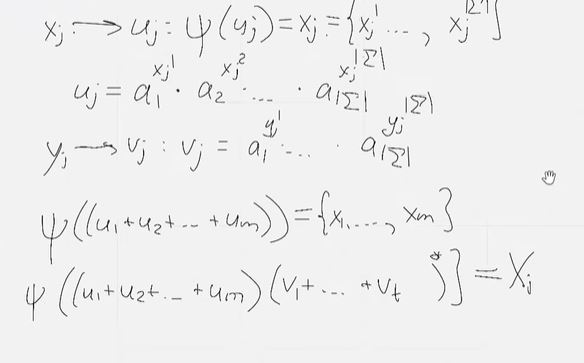 xⱼ ⟶ uⱼ : ψ(uⱼ) = xⱼ = {xⱼ¹ ..., xⱼ^|Σ|}
uⱼ = a₁^(xⱼ¹) · a₂^(xⱼ²) · ... · a_|Σ|^(xⱼ^|Σ|)
yⱼ ⟶ vⱼ : vⱼ = a₁^(yⱼ¹) · ... · a_|Σ|^(yⱼ^|Σ|)
ψ((u₁+u₂+...+uₘ)) = {x₁,..., xₘ}
ψ((u₁+u₂+...+uₘ)(v₁+...+vₜ)*)} = Xⱼ